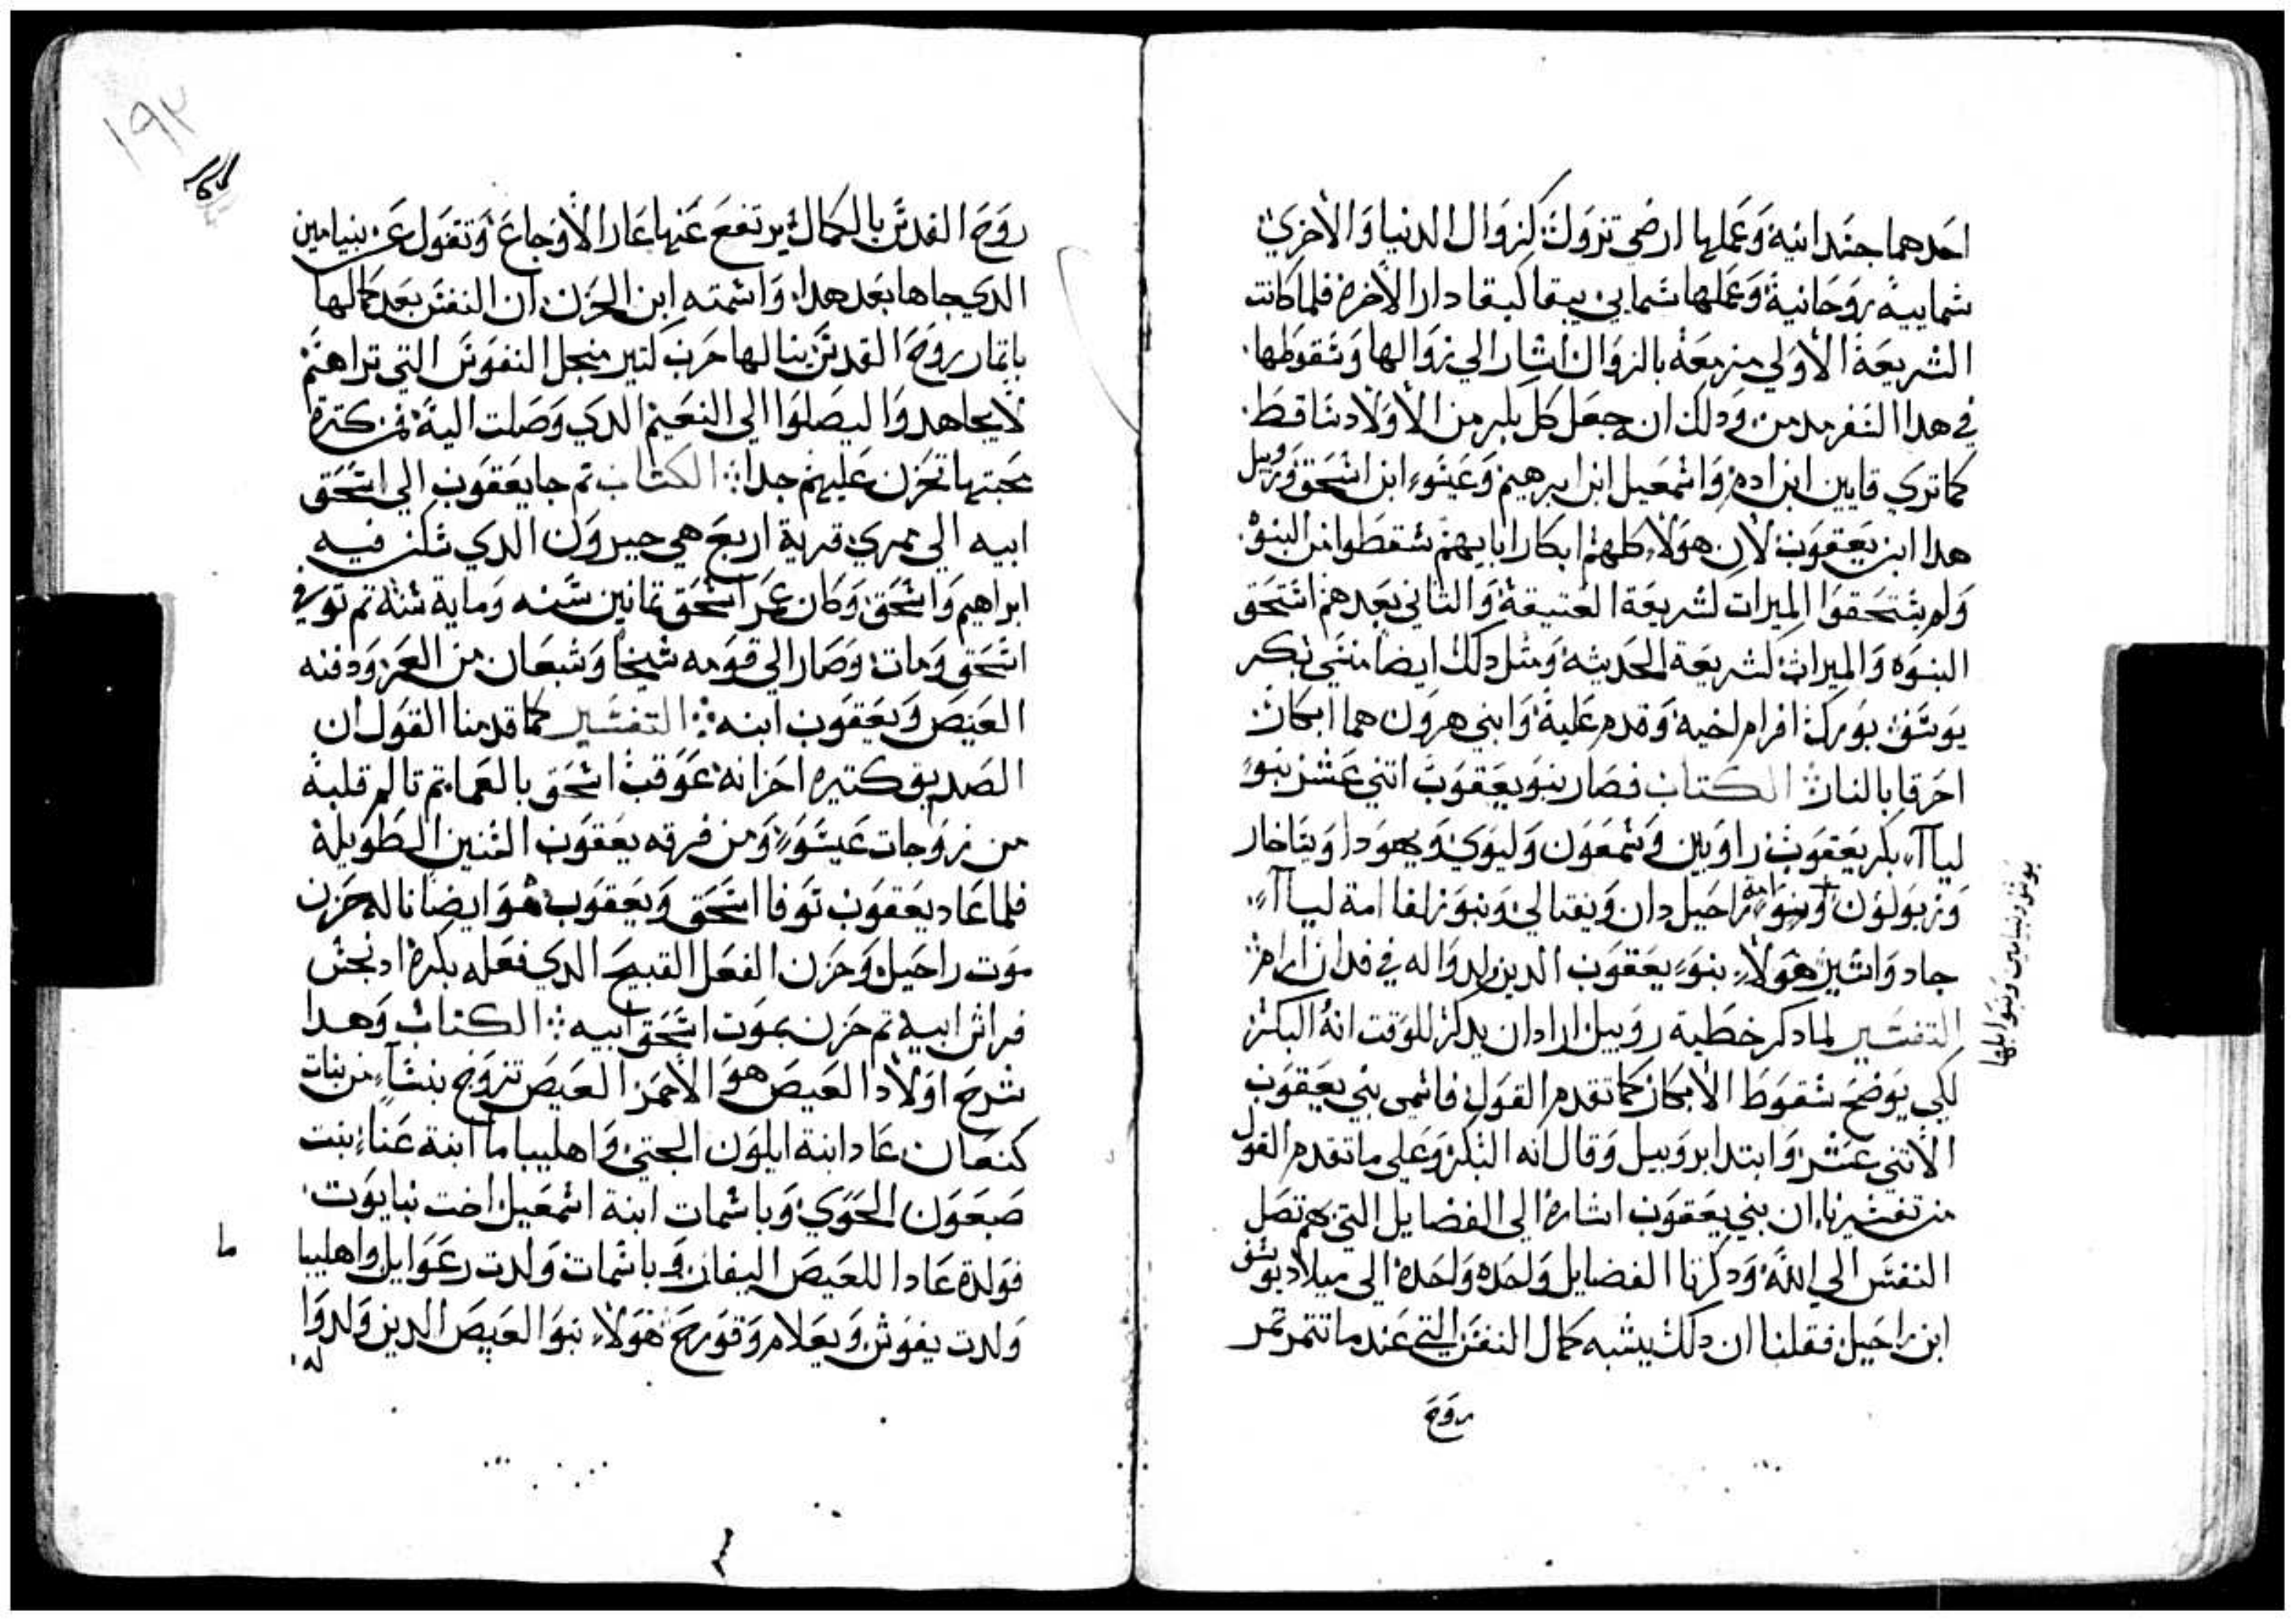 احدهما جسدانية وعملها ارضي تزول كزوال الدنيا والاخري
سمايية روحانية وعملها سمايي يبقا كبقا دار الاخرة فلما كانت
الشريعة الاولي مزمعة بالزوال اشار الي زوالها وسقوطها
في هدا السفر مدمن ودلك ان جعل كل بكر من الاولاد ساقط
كما تري قايين ابن ادم واسمعيل ابن ابرهيم وعيسو ابن اسحق وروبيل
هدا ابن يعقوب لان هولاء كلهم ابكار ابايهم سقطوا من البنوة
ولم يستحقوا الميرات لشريعة العتيقة والتاني بعدهم استحق
البنوه والميرات لشريعة الحديثة ومثل دلك ايضا منسي بكر
يوسف بورك افرام اخيه وقدم عليه وابني هرون هما ابكار
احرقا بالنار الكتاب فصار بنو يعقوب اتني عشر بنو
ليا آ بكر يعقوب راوبين وشمعون وليوي ويهودا ويساخار
وزبولون وبنوا امة راحيل دان ونفتالي وبنو زلفا امة ليا آ
جاد واشير هولاء بنو يعقوب الدين ولدوا له في فدان ارام
التفسير لما دكر خطية روبيل اراد ان يدكر للوقت انه البكر
لكي يوضح سقوط الابكار كما تقدم القول فاسمي بني يعقوب
الاتني عشر وابتدا بروبيل وقال انه البكر وعلي ما تقدم القول
من تفسيرنا ان بني يعقوب اشارة الي الفضايل التي بهم تصل
النفس الي الله ودكرنا الفضايل واحده واحدة الي ميلاد يوسف
ابن راحيل فقلنا ان دلك يشبه كمال النفس التي عند ما تتمر تمر
روح
يوسف وبنيامين وبنوا بلها
١٩٢
روح القدس بالكمال يرتفع عنها عار الاوجاع وتقول عن بنيامين
الدي جاها بعد هدا واسمته ابن الحزن ان النفس بعد كمالها
باتمار روح القدس ينالها حزن كتير من اجل النفوس التي تراهم
لا يجاهدوا ليصلوا الي النعيم الدي وصلت اليه فمن كترة
محبتها تحزن عليهم جدا الكتاب تم جا يعقوب الي اسحق
ابيه الي ممري قرية اربع هي حيرون الدي سكن فيه
ابراهيم واسحق وكان عمر اسحق تمانين سنه وماية سنة تم توفي
اسحق ومات وصار الي قومه شيخا وشبعان من العمر ودفنه
العيص ويعقوب ابنه التفسير كما قدمنا القول ان
الصديق كتيره احزانه عوقب اسحق بالعما تم تالم قلبه
من زوجات عيسو ومن فرقه يعقوب السنين الطويلة
فلما عاد يعقوب توفا اسحق ويعقوب هو ايضا ناله حزن
موت راحيل وحزن الفعل القبيح الدي فعله بكره اد نجس
فراش ابيه تم حزن بموت اسحق ابيه الكتاب وهدا
شرح اولاد العيص هو الاحمر العيص تزوج بنساء من بنات
كنعان عادا بنة ايلون الحتي واهليباما ابنة عناء بنت
صبعون الحوي وباسمات ابنة اسمعيل اخت نبايوت
فولدة عادا للعيص اليفاز وباسمات ولدت رعوايل واهليبا
ما
ولدت يغوش ويعلام وقورح هولاء بنو العيص الدين ولدوا
له